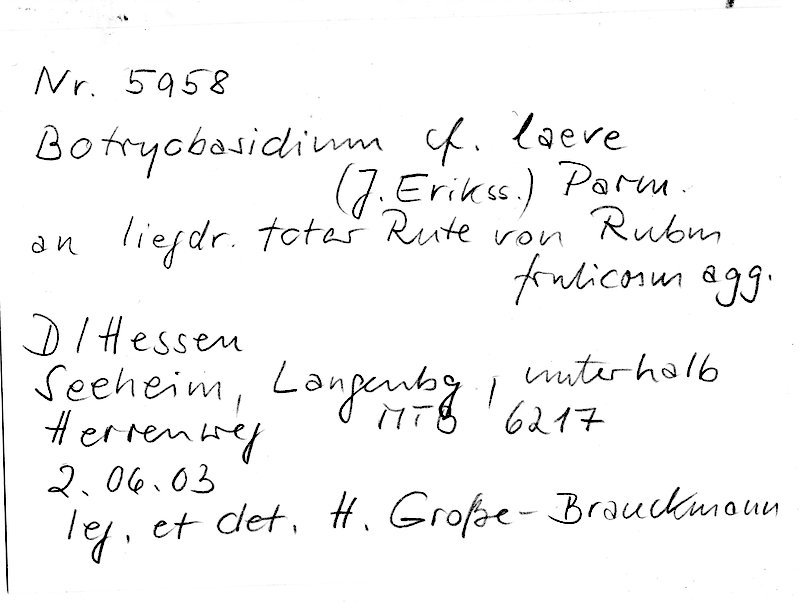 Nr. 5958
Botryobasidium cf. laeve
(J. Erikss.) Parm.
an liegdr. toter Rute von Rubus
fruticosus agg.
D/Hessen
Seeheim, Langenbg, unterhalb
Herrenweg MTB 6217
2.06.03
leg. et det. H. Große-Brauckmann